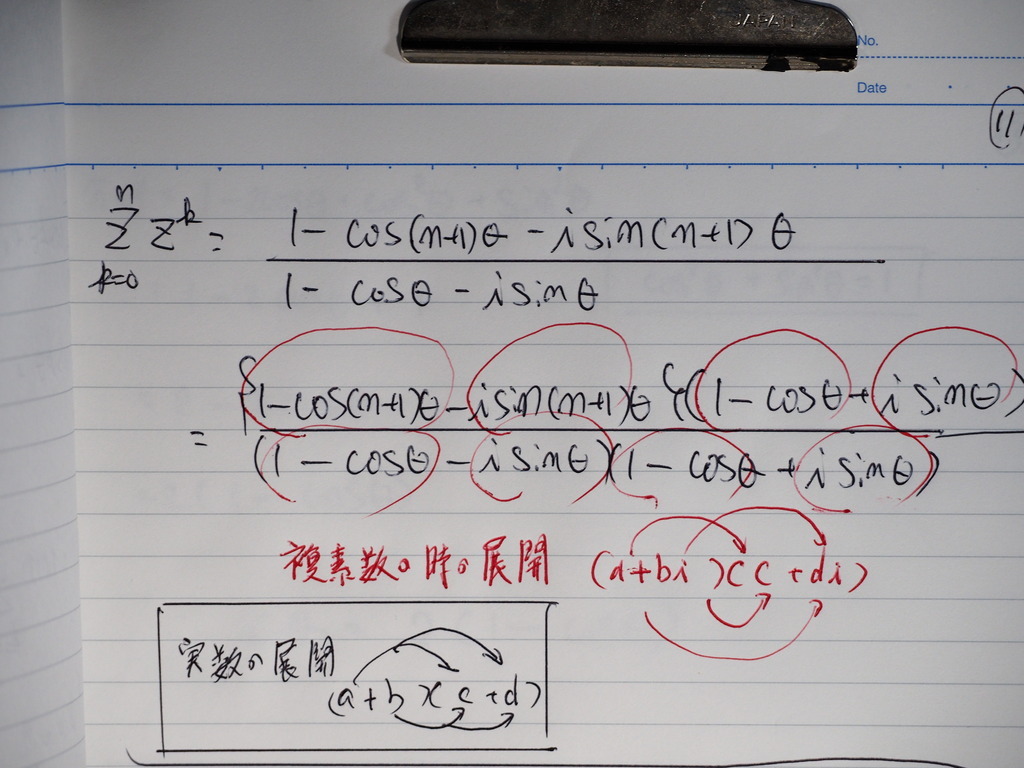 JAPAN
No.
Date
11
n
Σ z^k = 1 - cos(n+1)θ - i sin(n+1)θ
k=0
1 - cosθ - i sinθ
{1-cos(n+1)θ - i sin(n+1)θ}(1 - cosθ + i sinθ)
=
(1 - cosθ - i sinθ)(1 - cosθ + i sinθ)
複素数の時の展開 (a+bi)(c+di)
実数の展開
(a+b)(c+d)